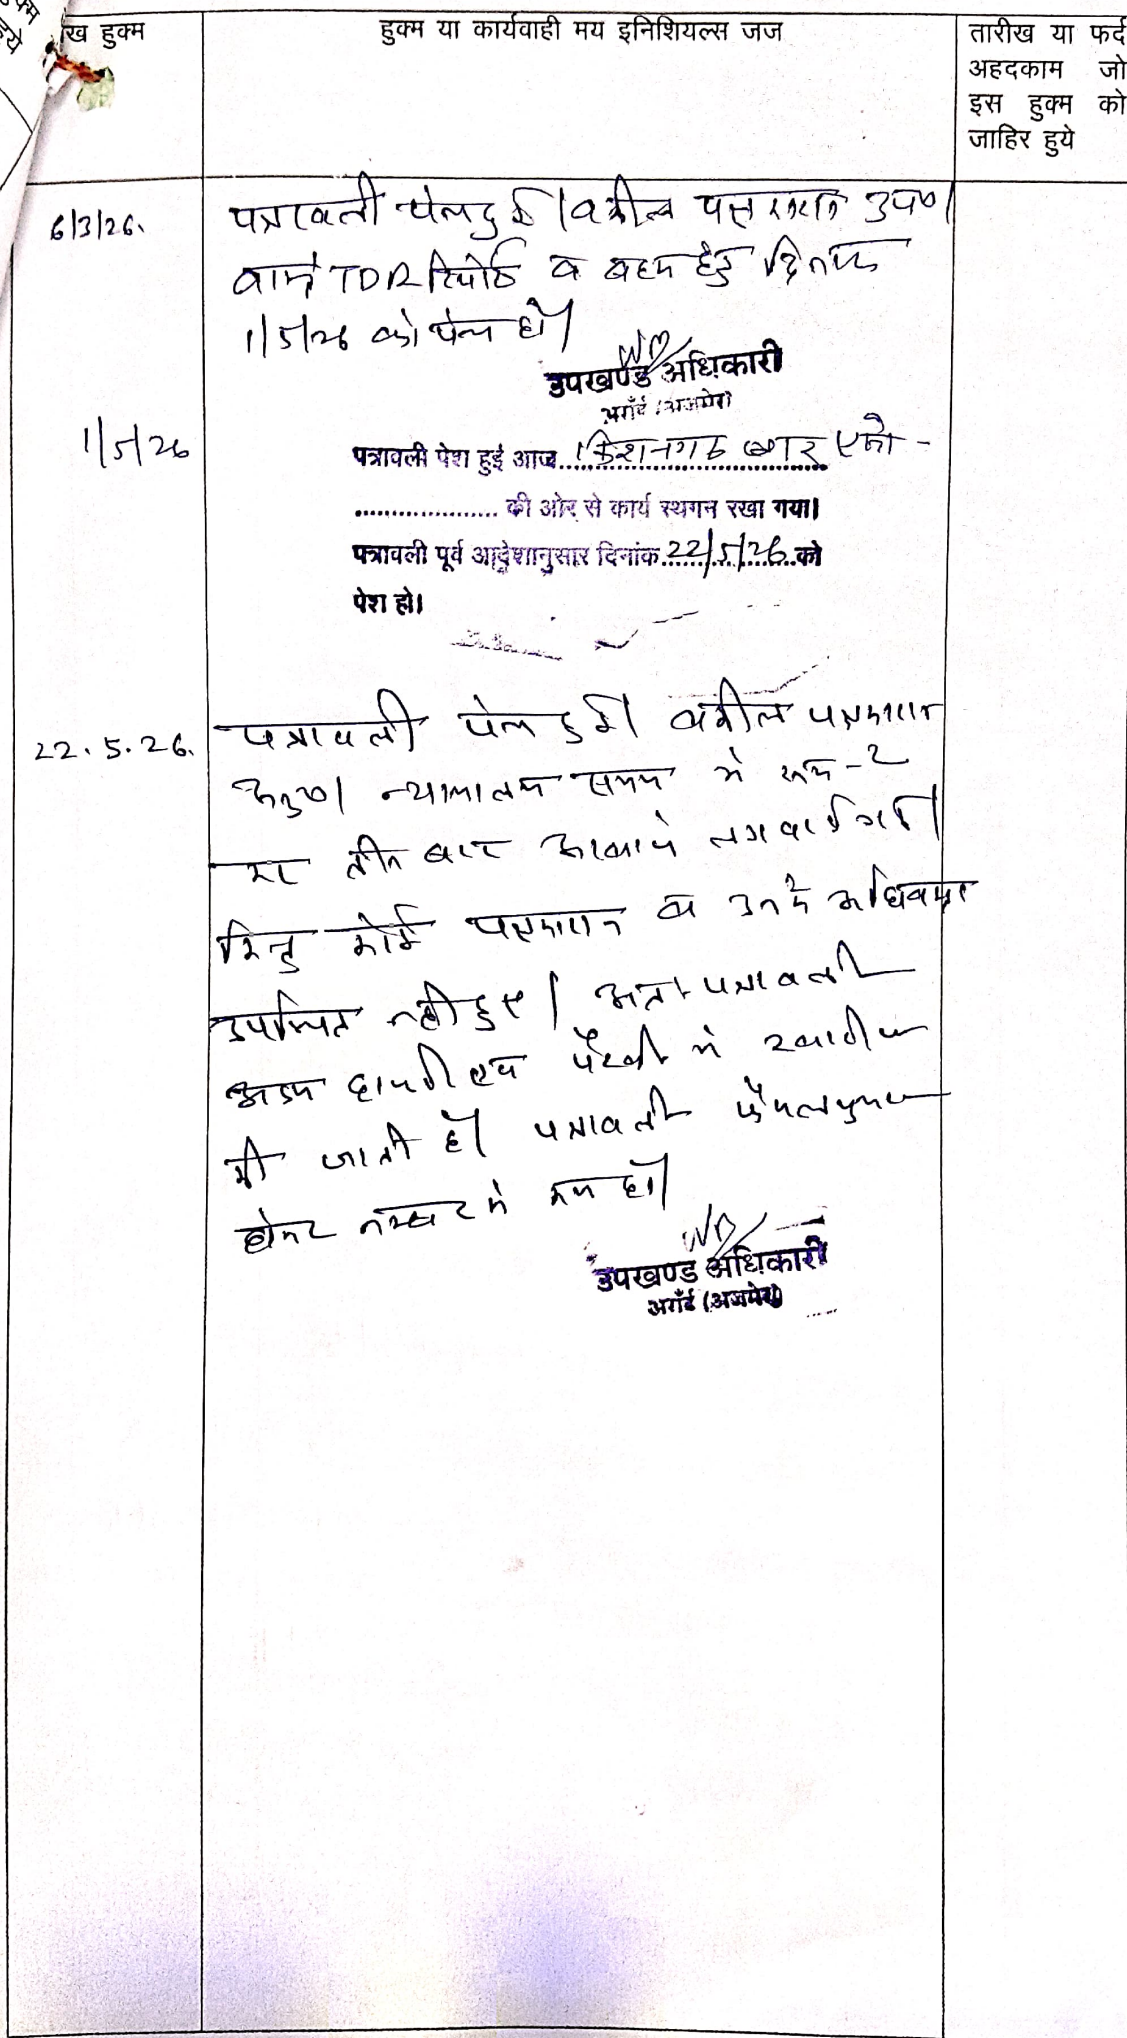 ख हुक्म
हुक्म या कार्यवाही मय इनिशियल्स जज
तारीख या फर्द
अहदकाम जो
इस हुक्म को
जाहिर हुये
6/3/26.
पत्रावली पेश हुई। वकील पक्षकारान उप०।
वास्ते TDR रिपोर्ट व बहस हेतु दिनांक
1/5/26 को पेश हो।
उपखण्ड अधिकारी
अराँई (अजमेर)
1/5/26
पत्रावली पेश हुई आज किशनगढ़ बार एसो -
की ओर से कार्य स्थगन रखा गया।
पत्रावली पूर्व आदेशानुसार दिनांक 22/5/26 को
पेश हो।
22.5.26.
पत्रावली पेश हुई। वकील पक्षकारान
अनु०। न्यायालय समय में रूक-2
कर तीन बार आवाजे लगवाई गई।
किन्तु कोई पक्षकारान व उनके अधिवक्ता
उपस्थित नहीं हुए। अतः पत्रावली
अदम हाजरी एवं पैरवी में खारीज
की जाती है। पत्रावली फैसलशुमार
होकर नम्बर से कम हो।
उपखण्ड अधिकारी
अराँई (अजमेर)